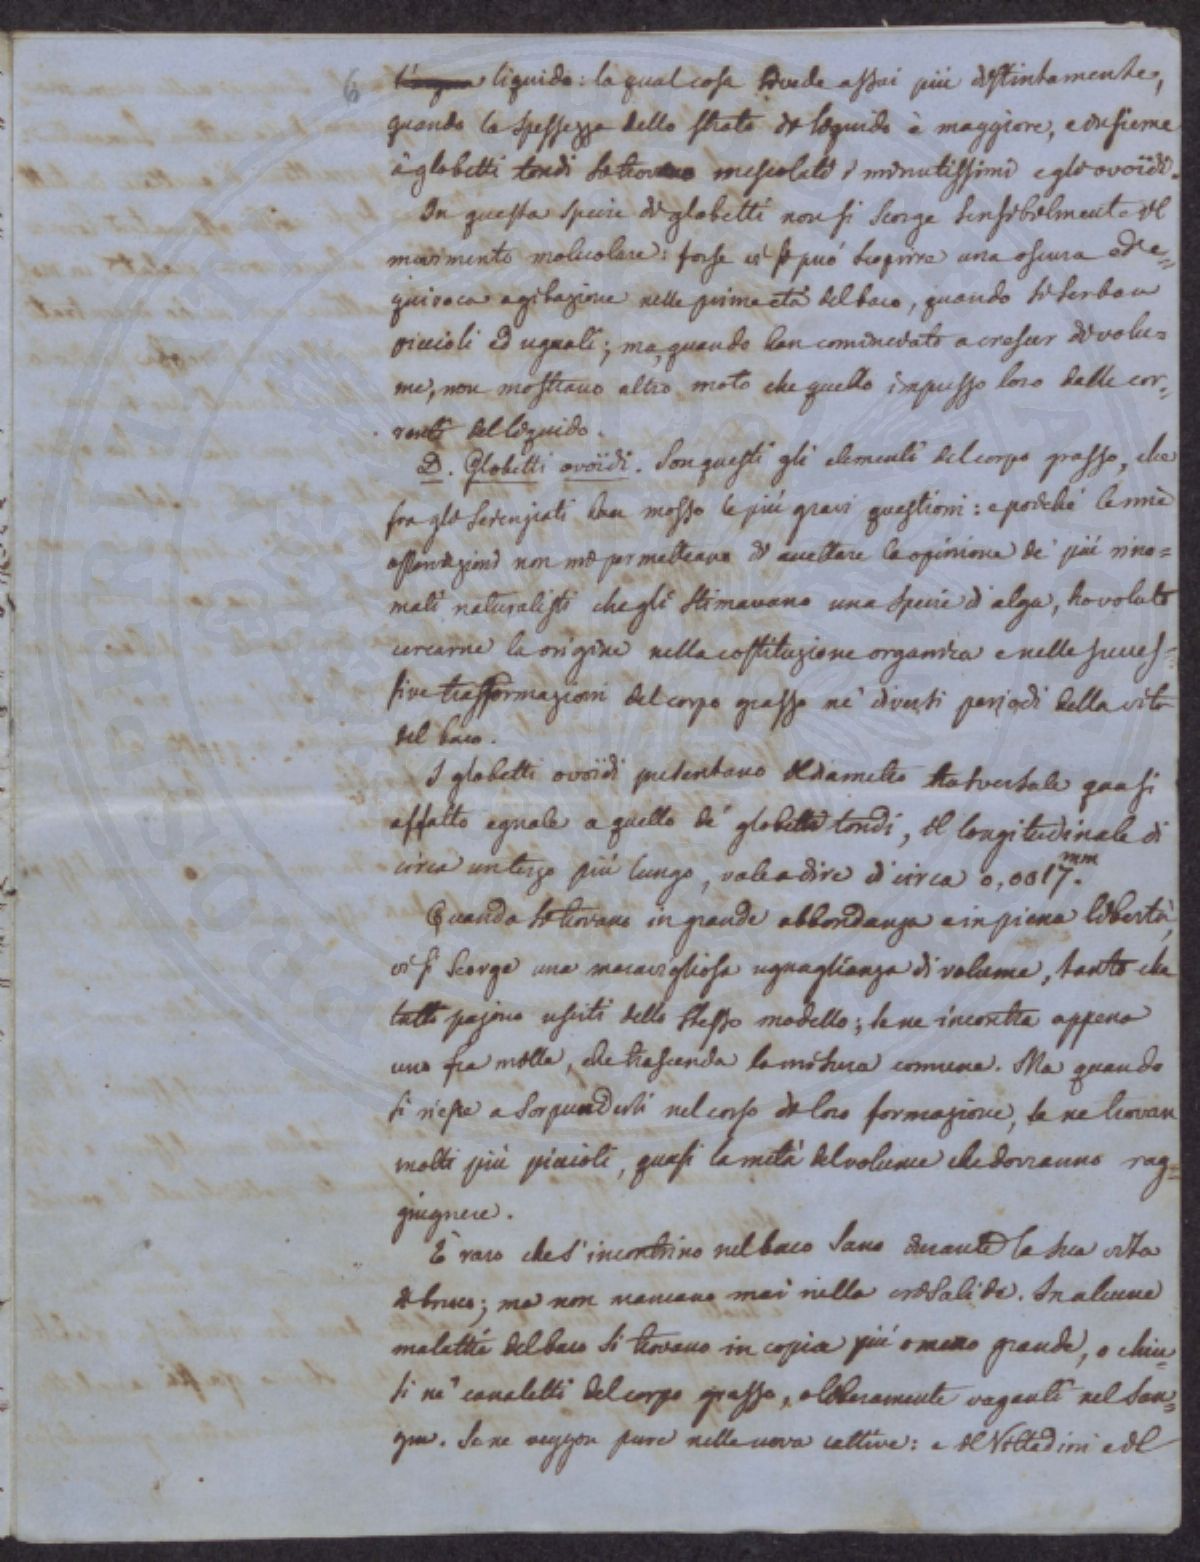 6 liquido: la qual cosa si vede assai più distintamente,
quando la spessezza dello strato di liquido è maggiore, e insieme
a' globetti tondi si trovano mescolati i minutissimi e gli ovoïdi.
In questa specie di globetti non si scorge sensibilmente il
movimento molecolare: forse vi si può scoprire una oscura ed e=
quivoca agitazione nelle prime età del baco, quando si serban
piccioli ed uguali; ma, quando han cominciato a crescer di volu=
me, non mostrano altro moto che quello impresso loro dalle cor=
renti del liquido.
D. Globetti ovoïdi. Son questi gli elementi del corpo grasso, che
fra gli scienziati han mosso le più gravi questioni: e poiché le mie
osservazioni non mi permetteano di accettare la opinione de' più rino=
mati naturalisti che gli stimavano una specie d'alga, ho voluto
cercarne la origine nella costituzione organica e nelle succes=
sive trasformazioni del corpo grasso ne' diversi periodi della vita
del baco.
I globetti ovoïdi presentano il diametro trasversale quasi
affatto eguale a quello de' globetti tondi, il longitudinale di
circa un terzo più lungo, vale a dire di circa 0,0017.mm
Quando si trovano in grande abbondanza e in piena libertà,
vi si scorge una maravigliosa uguaglianza di volume, tanto che
tutti pajono usciti dello stesso modello; se ne incontra appena
uno fra mille, che trascenda la misura comune. Ma quando
si riesce a sorprenderli nel corso di loro formazione, se ne trovan
molti più piccioli, quasi la metà del volume che dovranno rag=
giugnere.
È raro che s'incontrino nel baco sano durante la sua vita
di bruco; ma non mancano mai nella crisalide. In alcune
malattie del baco si trovano in copia più o meno grande, o chiu=
si ne' canaletti del corpo grasso, o liberamente vaganti nel san=
gue. Se ne veggon pure nelle uova cattive: e il Vittadini e il